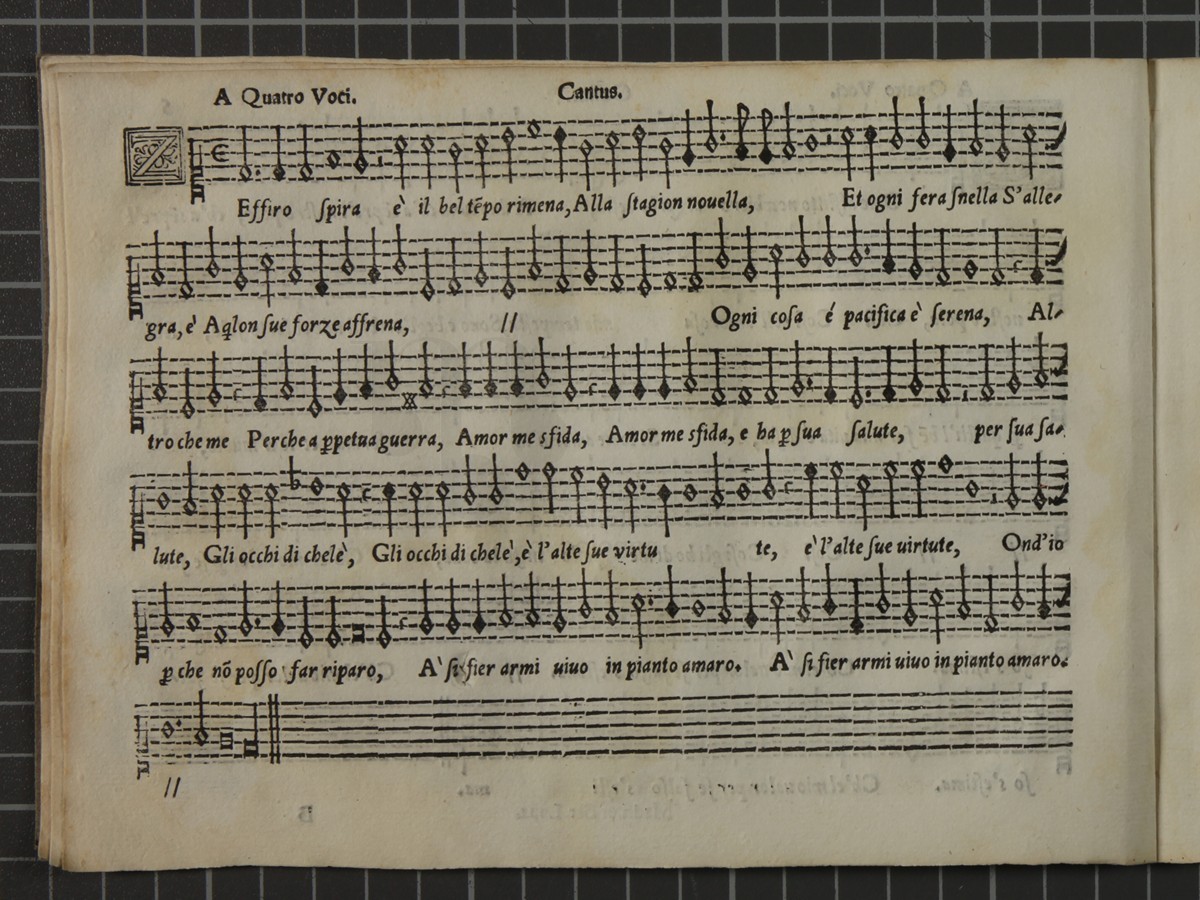 A Quatro Voci. Cantus.
ZEffiro ſpira è il bel tẽpo rimena, Alla ſtagion nouella, Et ogni fera ſnella S'alle-
gra, e' Aq̃lon ſue forze affrena, // Ogni coſa é pacifica è ſerena, Al-
tro che me Perche a ꝑpetua guerra, Amor me sfida, Amor me sfida, e ha ꝑ ſua ſalute, per ſua ſa-
lute, Gli occhi di chelè, Gli occhi di chelè, è l'alte ſue virtu te, e' l'alte ſue uirtute, Ond'io
ꝑ che nõ poſſo far riparo, A' ſi fier armi uiuo in pianto amaro. A' ſi fier armi uiuo in pianto amaro.
//